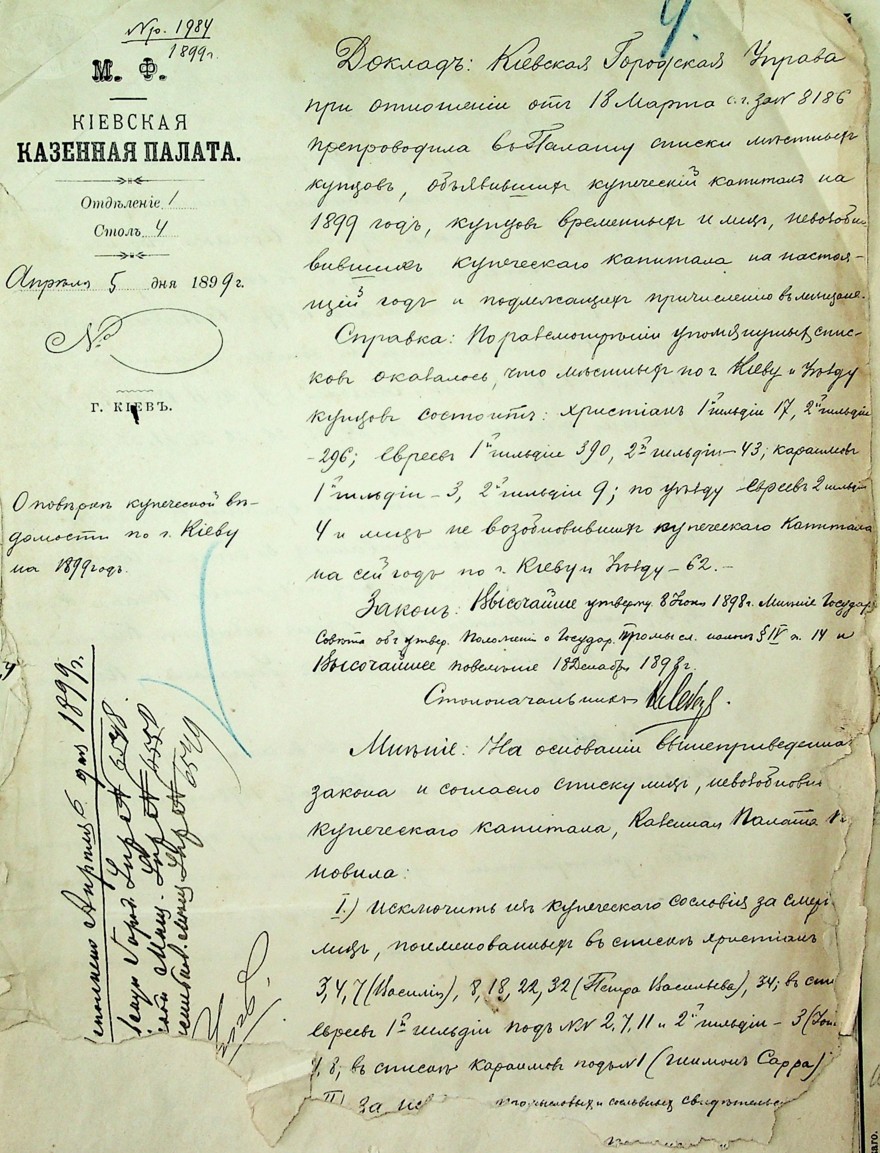 Пр. 1984
1899 г.
М. Ф.
КІЕВСКАЯ
КАЗЕННАЯ ПАЛАТА.
Отдѣленіе 1
Столъ 4
Апрѣля 5 дня 1899 г.
№
г. КІЕВЪ.
О повѣркѣ купеческой вѣ-
домости по г. Кіеву
на 1899 годъ.
4.
Докладъ: Кіевская Городская Управа
при отношеніи отъ 18 Марта с. г. за № 8186
препроводила въ Палату списки мѣстныхъ
купцовъ, объявившихъ купеческій капиталъ на
1899 годъ, купцовъ временныхъ и лицъ, невозобно
вившихъ купеческаго капитала на настоя-
щій годъ и подлежащихъ причисленію въ мѣщане.
Справка: По разсмотрѣніи упомянутыхъ спис-
ковъ оказалось, что мѣстныхъ по г. Кіеву и Уѣзду
купцовъ состоитъ: христіанъ 1й гильдіи 17, 2й гильдіи
- 296; евреевъ 1й гильдіи 390, 2й гильдіи – 43; караимовъ
1й гильдіи – 3, 2й гильдіи 9; по уѣзду евреевъ 2 гильдіи
4 и лицъ не возобновившихъ купеческаго капитала
на сей годъ по г. Кіеву и Уѣзду – 62. –
Законъ: Высочайше утвержд. 8 Іюня 1898 г. Мнѣніе Государ
Совѣта объ утвер. Положенія о Государ. Промысл. налогѣ § IV п. 14 и
Высочайшее повелѣніе 18 Декабря 1898 г.
Столоначальникъ
Мнѣніе: На основаніи вышеприведенна
закона и согласно списку лицъ, невозобнови
купеческаго капитала, Казенная Палата
новила:
I.) Исключить изъ купеческаго сословія за смер
лицъ, поименованныхъ въ спискѣ христіанъ
3, 4, 7 (Василія), 8, 18, 22, 32 (Петра Васильева), 34; въ спи
евреевъ 1й гильдіи подъ №№ 2, 7, 11 и 2й гильдіи – 3
4, 8; въ спискѣ караимовъ подъ № 1 (Сарра)
II За промысловыхъ и сословныхъ свидѣтельс
Апрѣля 6 дня 1899 г.
Город. Упр. № 6548.
Мѣщ. Упр. № 6550
Мѣщ. Упр. № 6549